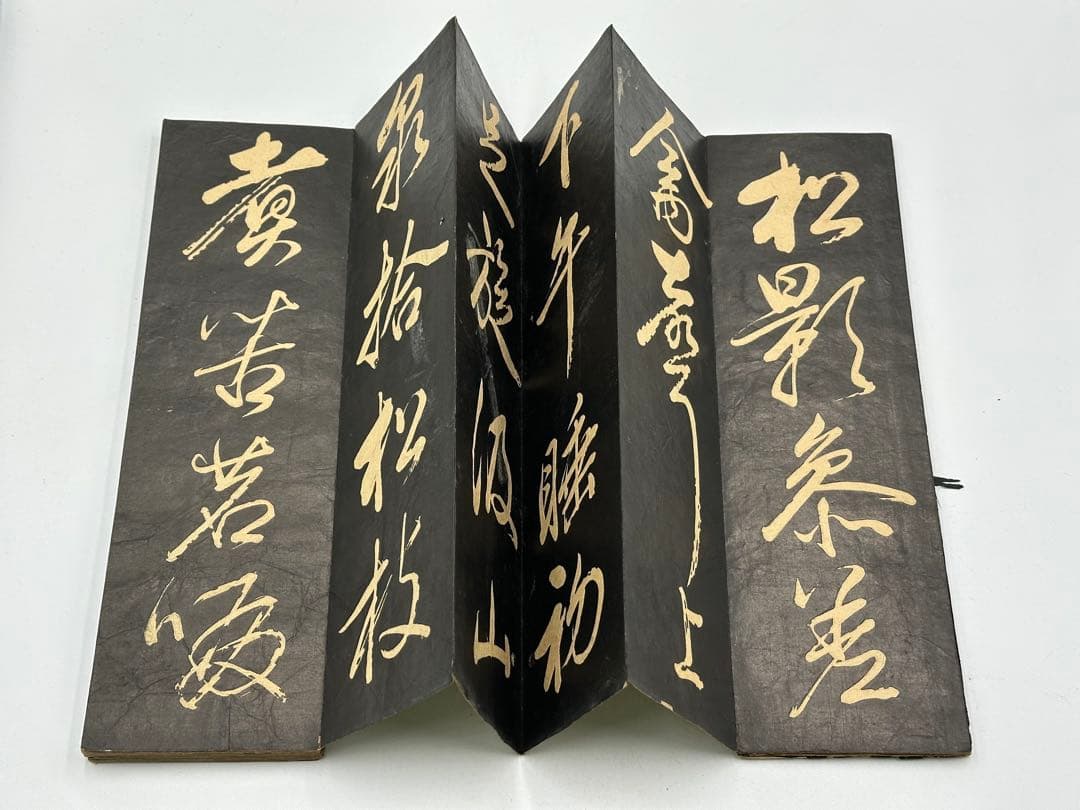 松影參差
禽聲上
下午睡初
足旋汲山
泉拾松枝
煮苦茗啜